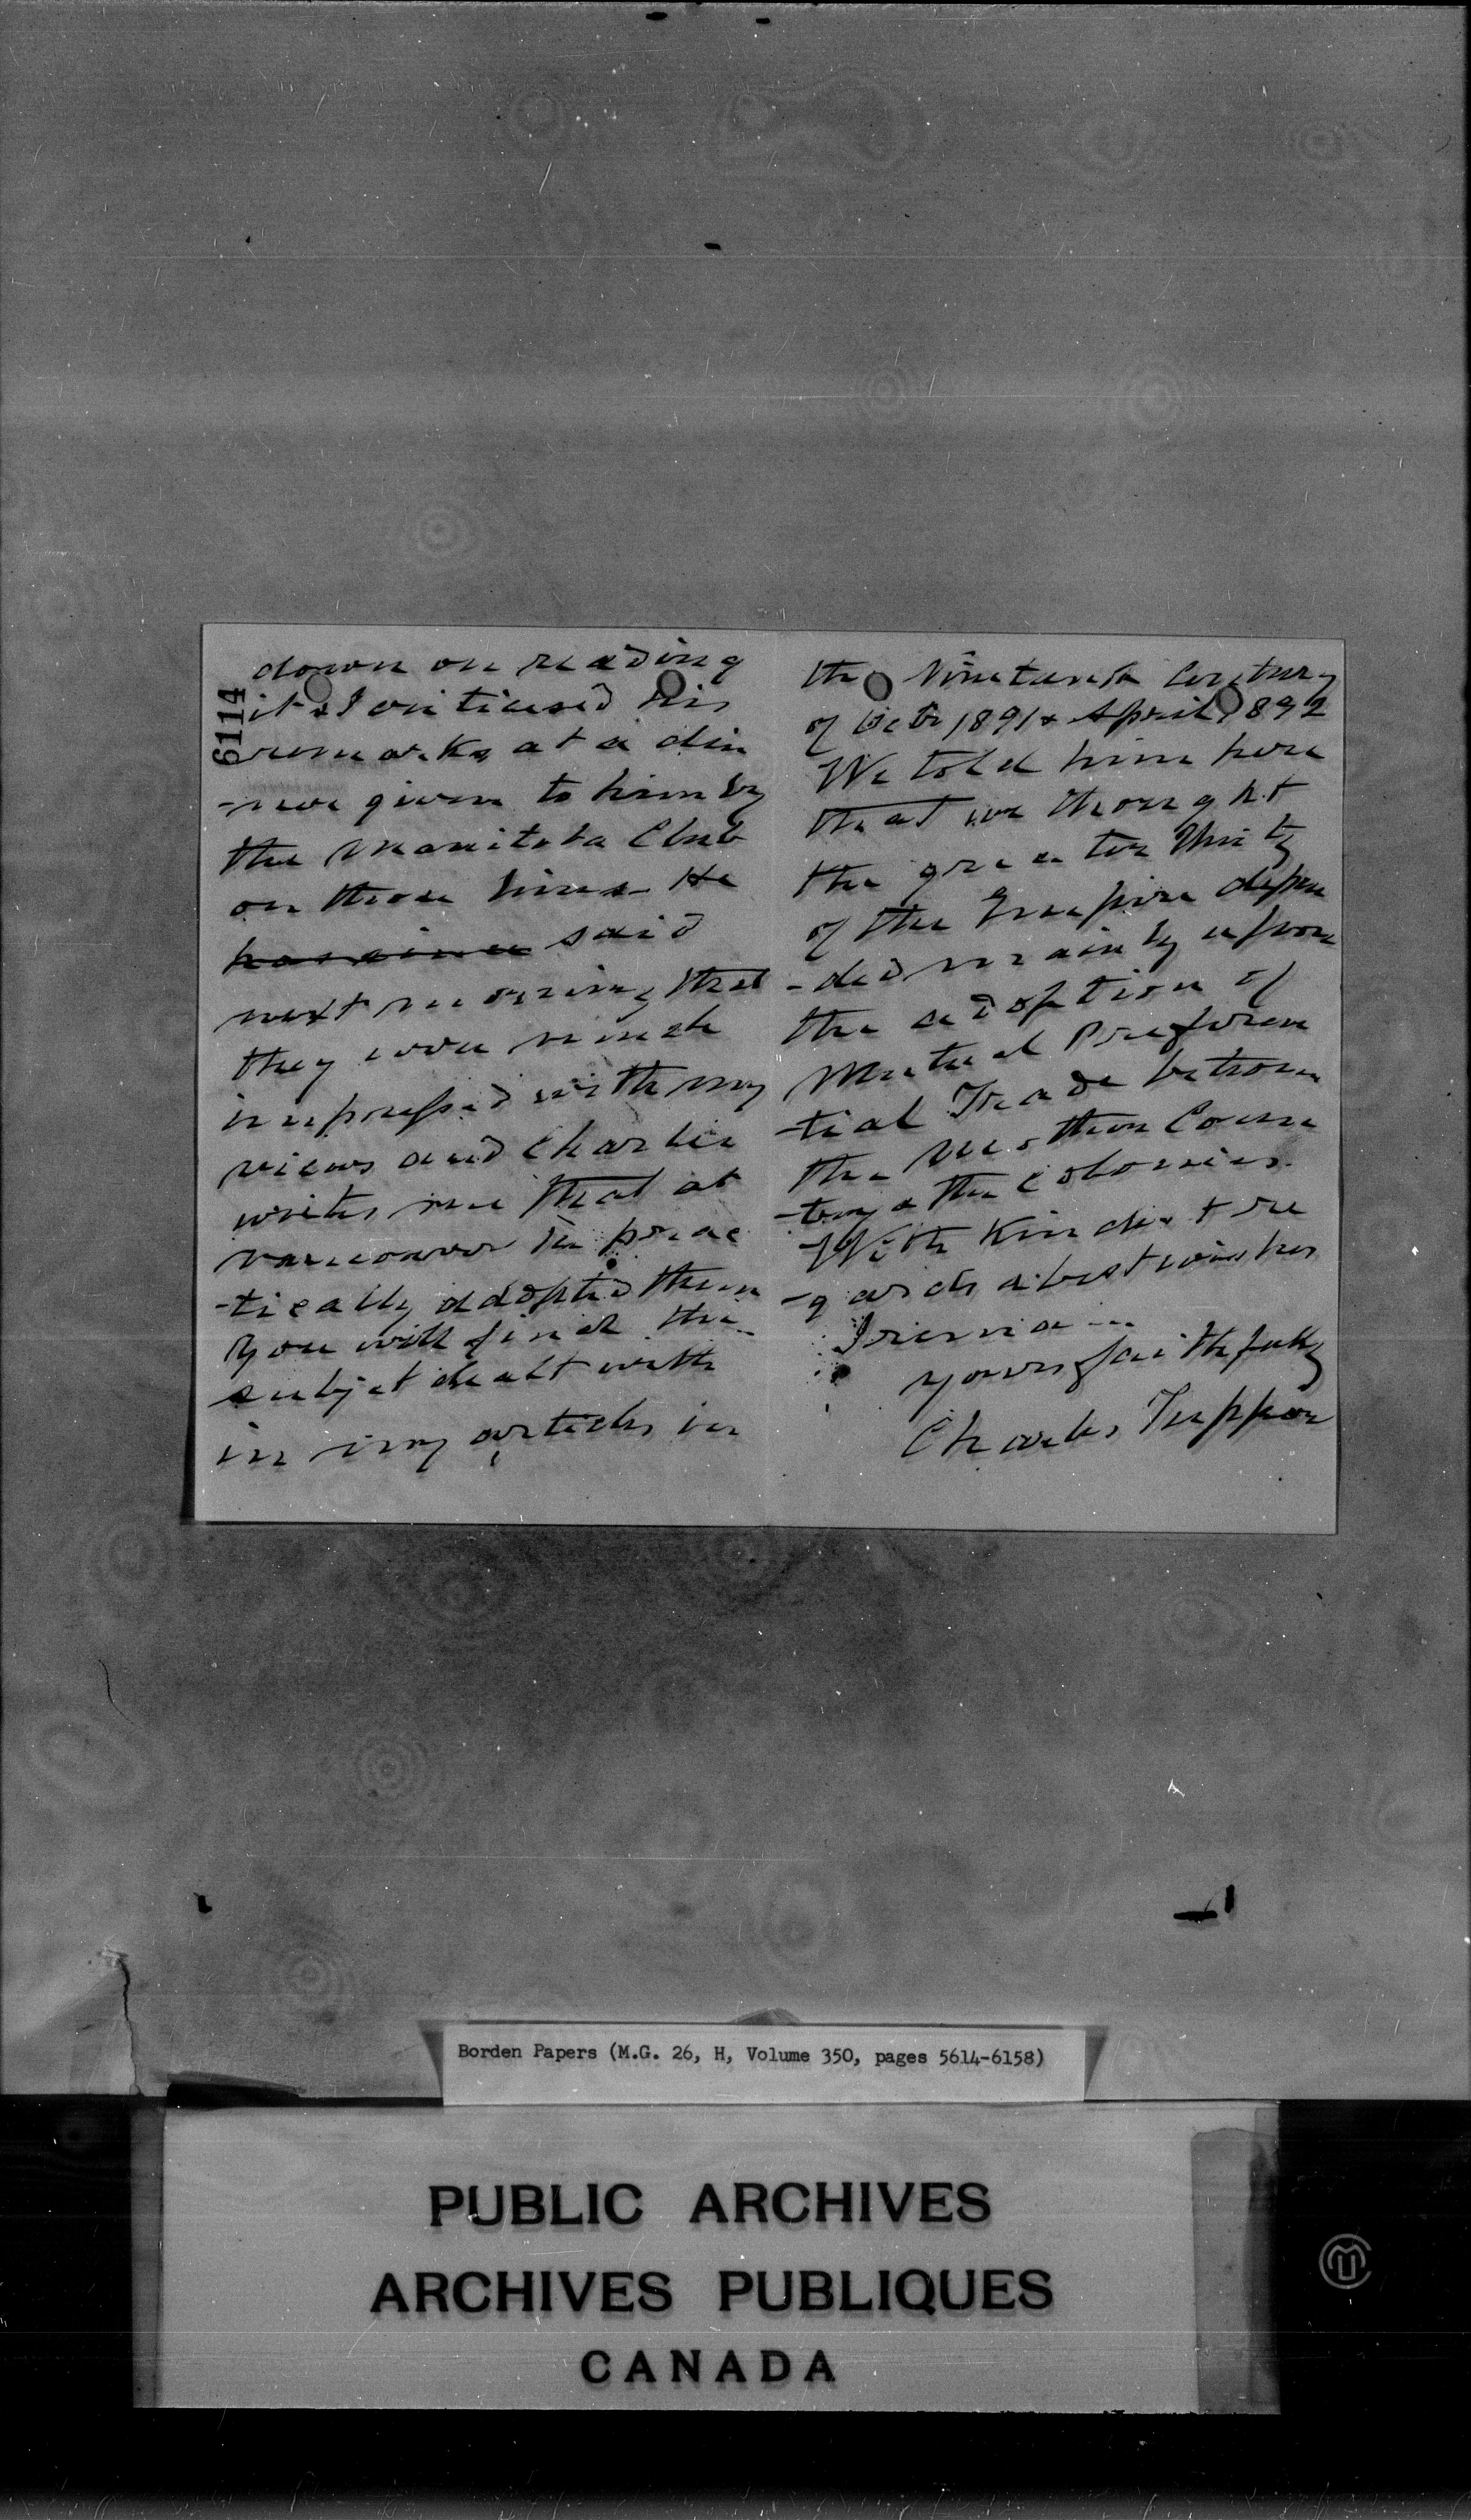 6114
down on reading
it & I criticised his
remarks at a din
-ner given to him by
the Manitoba Club
on those lines - He
has since said
next morning that
they were much
impressed with my
views and Charlie
writes me that at
Vancouver he prac
-tically adopted them
You will find the
subject dealt with
in my articles in
the Nineteenth Century
of Octr 1891 & April 1892
We told him here
that we thought
the greater Unity
of the Empire depen
-ded mainly upon
the adoption of
Mutual Preferen
-tial Trade between
the Mother Coun
-try & the Colonies.
With kindest re
-gards & best wishes
I remain
yours faithfully
Charles Tupper
Borden Papers (M.G. 26, H, Volume 350, pages 5614-6158)
PUBLIC ARCHIVES
ARCHIVES PUBLIQUES
CANADA